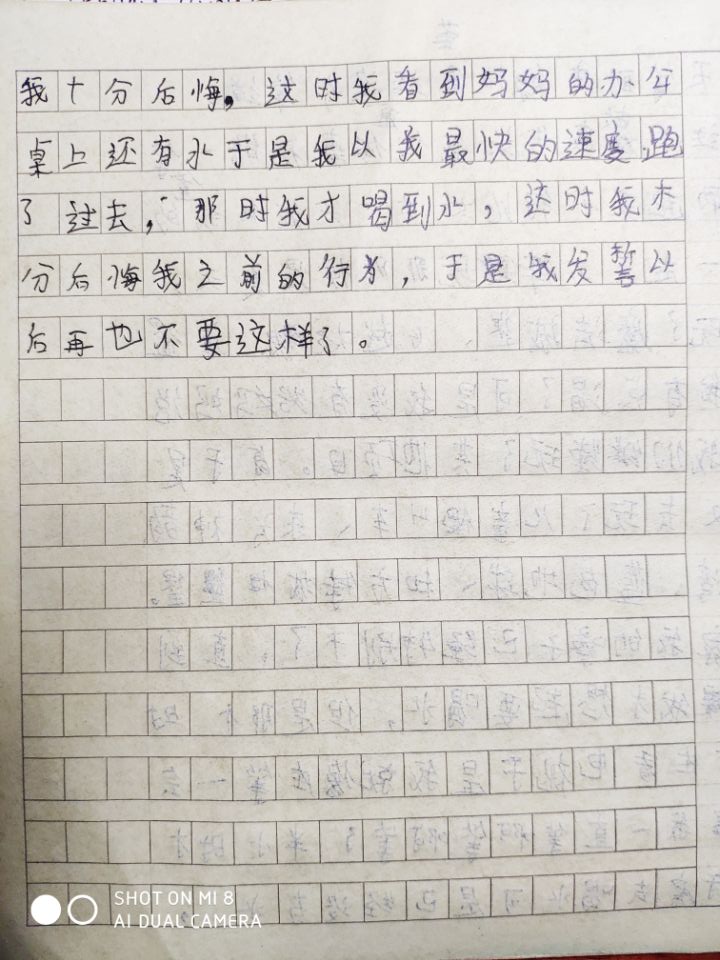 我十分后悔。这时我看到妈妈的办公
桌上还有水于是我以我最快的速度跑
了过去,那时我才喝到水,这时我十
分后悔我之前的行为,于是我发誓以
后再也不要这样了。
SHOT ON MI 8
AI DUAL CAMERA